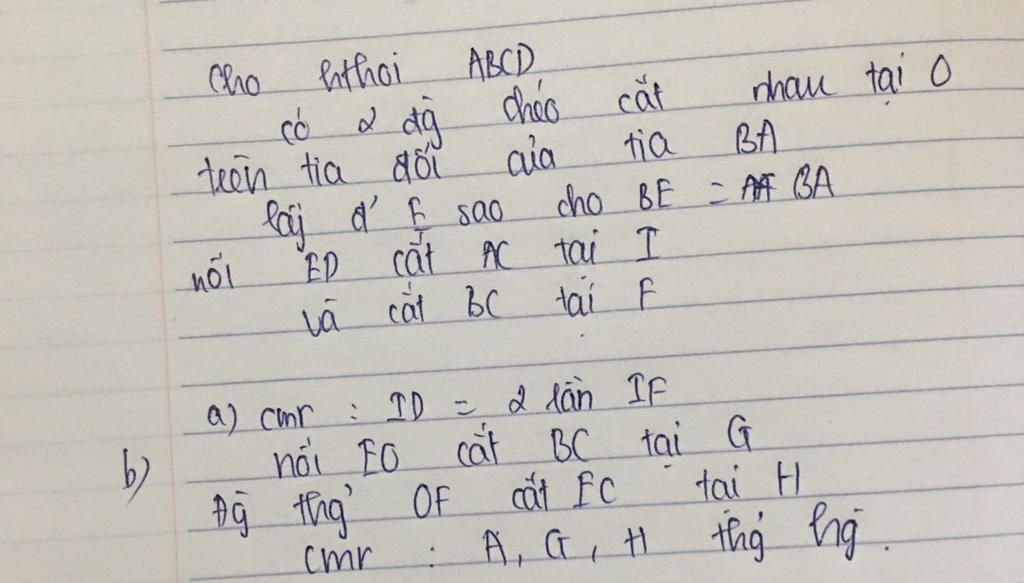 Cho hthoi ABCD
có 2 đg chéo cắt nhau tại O
trên tia đối của tia BA
lấy đ' E sao cho BE = BA
nối ED cắt AC tại I
và cắt BC tại F
a) cmr : ID = 2 lần IF
b) nối EO cắt BC tại G
Đg thg' OF cắt EC tại H
cmr : A, G, H thg' hg.